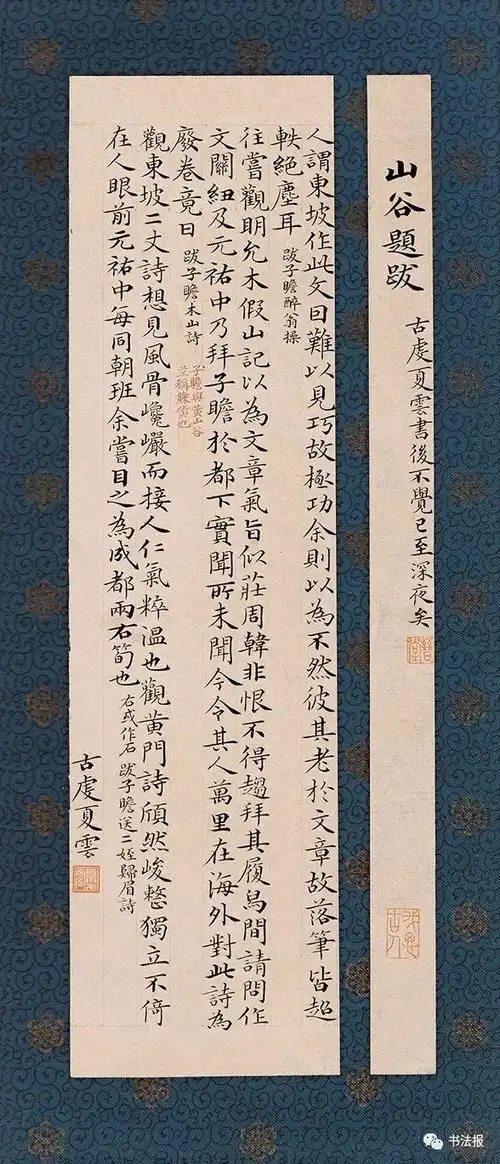 山谷題跋
古虞夏雲書後不覺已至深夜矣
人謂東坡作此文曰難以見巧故極功余則以為不然彼其老於文章故落筆皆超
軼絕塵耳 跋子瞻醉翁操
往嘗觀明允木假山記以為文章氣旨似莊周韓非恨不得趨拜其履舄間請問作
文關紐及元祐中乃拜子瞻於都下實聞所未聞今令其人萬里在海外對此詩為
廢卷竟日 跋子瞻木山詩
子瞻與黃山谷
並稱蘇黃也
觀東坡二丈詩想見風骨巉巖而接人仁氣粹溫也觀黃門詩頎然峻整獨立不倚
在人眼前元祐中每同朝班余嘗目之為成都兩右筍也 右或作石 跋子瞻送二姪歸眉詩
古虞夏雲
书法报